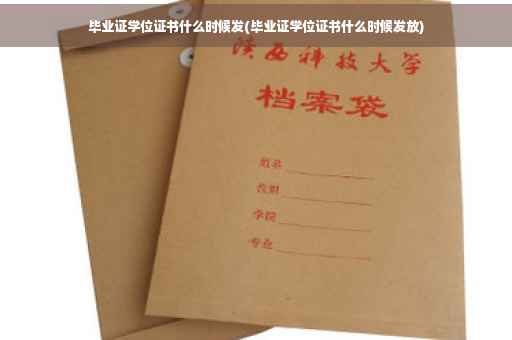 毕业证学位证书什么时候发(毕业证学位证书什么时候发放)
陕西科技大学
档案袋
姓名
学院
专业